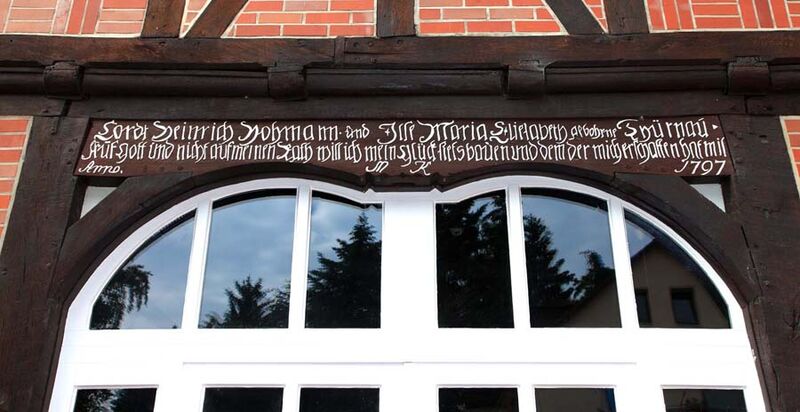 Cordt Heinrich Nohmann und Ilse Maria Elisabeth gebohrne Thürnau.
Auf Gott und nicht auf meinen Rath will ich mein Glück stets bauen und dem der mich erschaffen hat mit
Anno. M K 1797